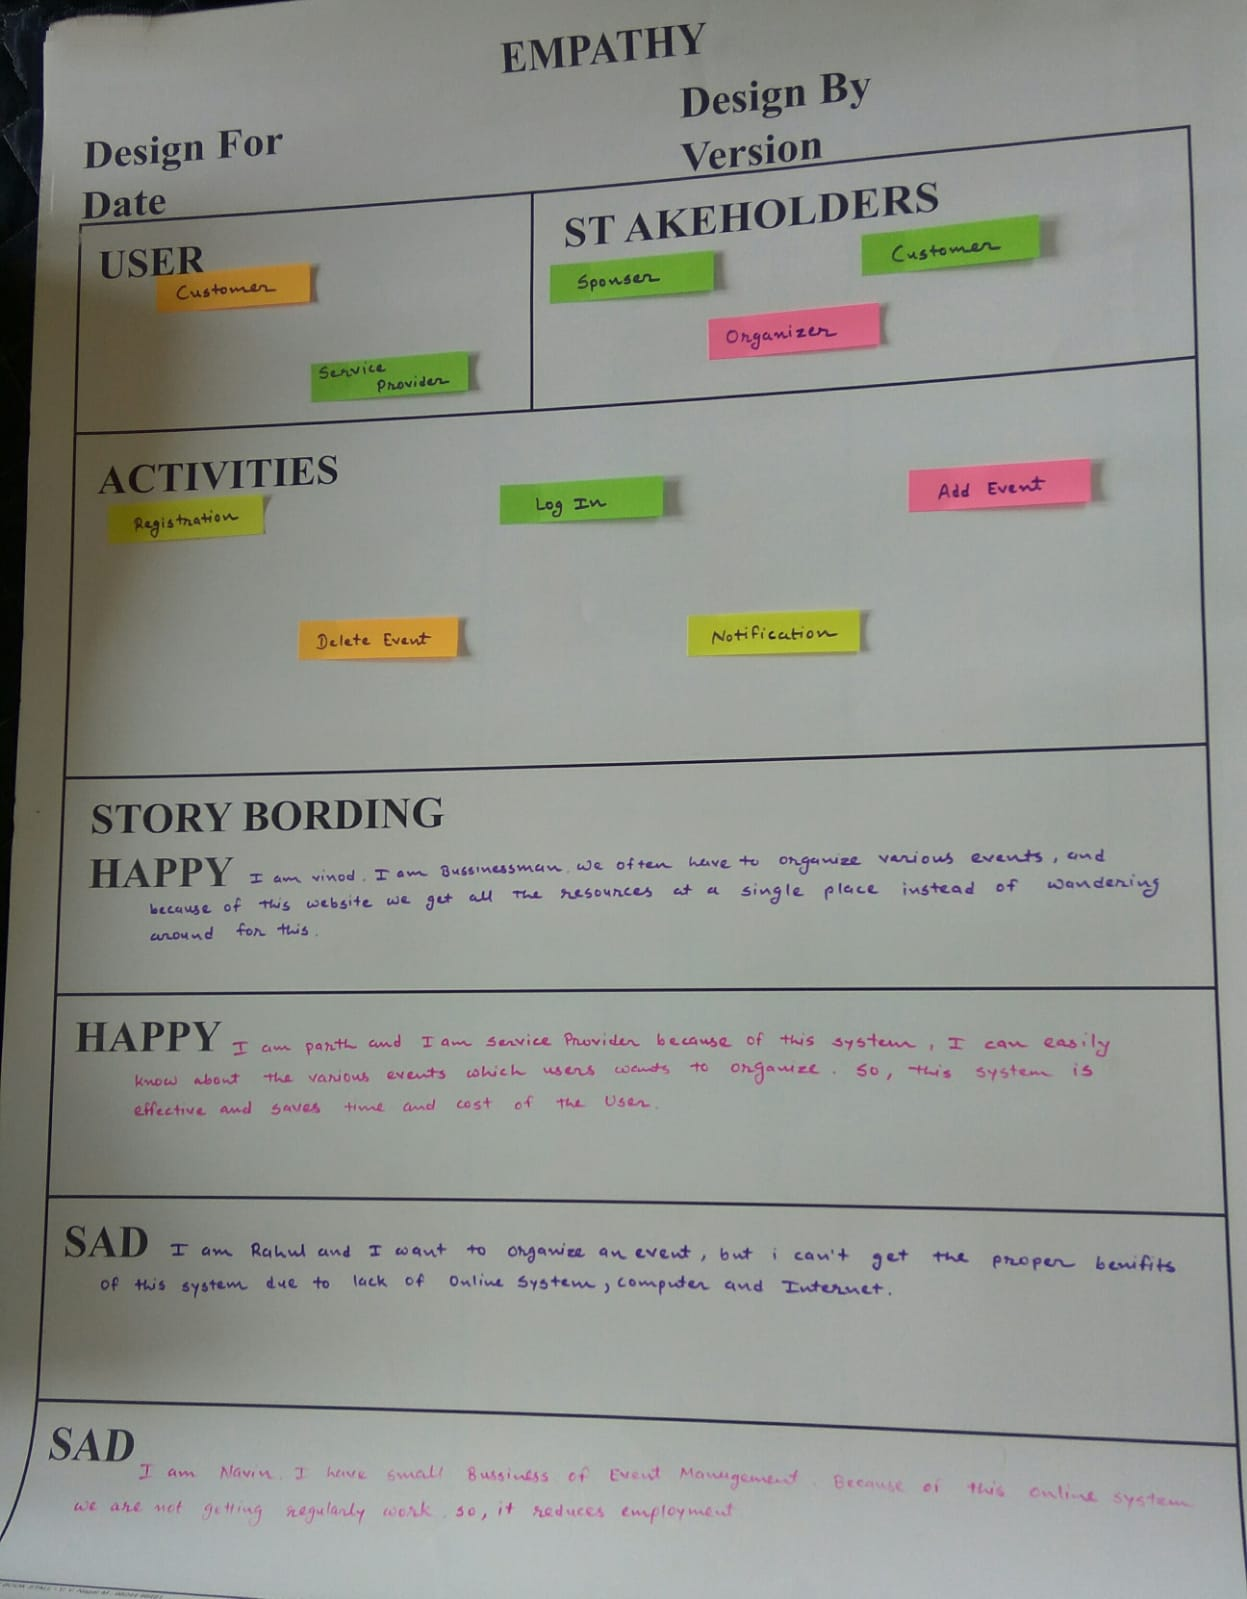 EMPATHY
Design For
Design By
Date
Version
USER
Customer
Service
Provider
ST AKEHOLDERS
Sponser
Customer
Organizer
ACTIVITIES
Registration
Log In
Add Event
Delete Event
Notification
STORY BORDING
HAPPY I am vinod. I am Bussinessman. we often have to organize various events, and
because of this website we get all the resources at a single place instead of wandering
around for this.
HAPPY I am parth and I am Service Provider because of this system, I can easily
know about the various events which users wants to organize. So, this system is
effective and saves time and cost of the User.
SAD I am Rahul and I want to organize an event, but i can't get the proper benifits
of this system due to lack of Online System, computer and Internet.
SAD
I am Navin. I have small Bussiness of Event Management. Because of this online system
we are not getting regularly work. so, it reduces employment